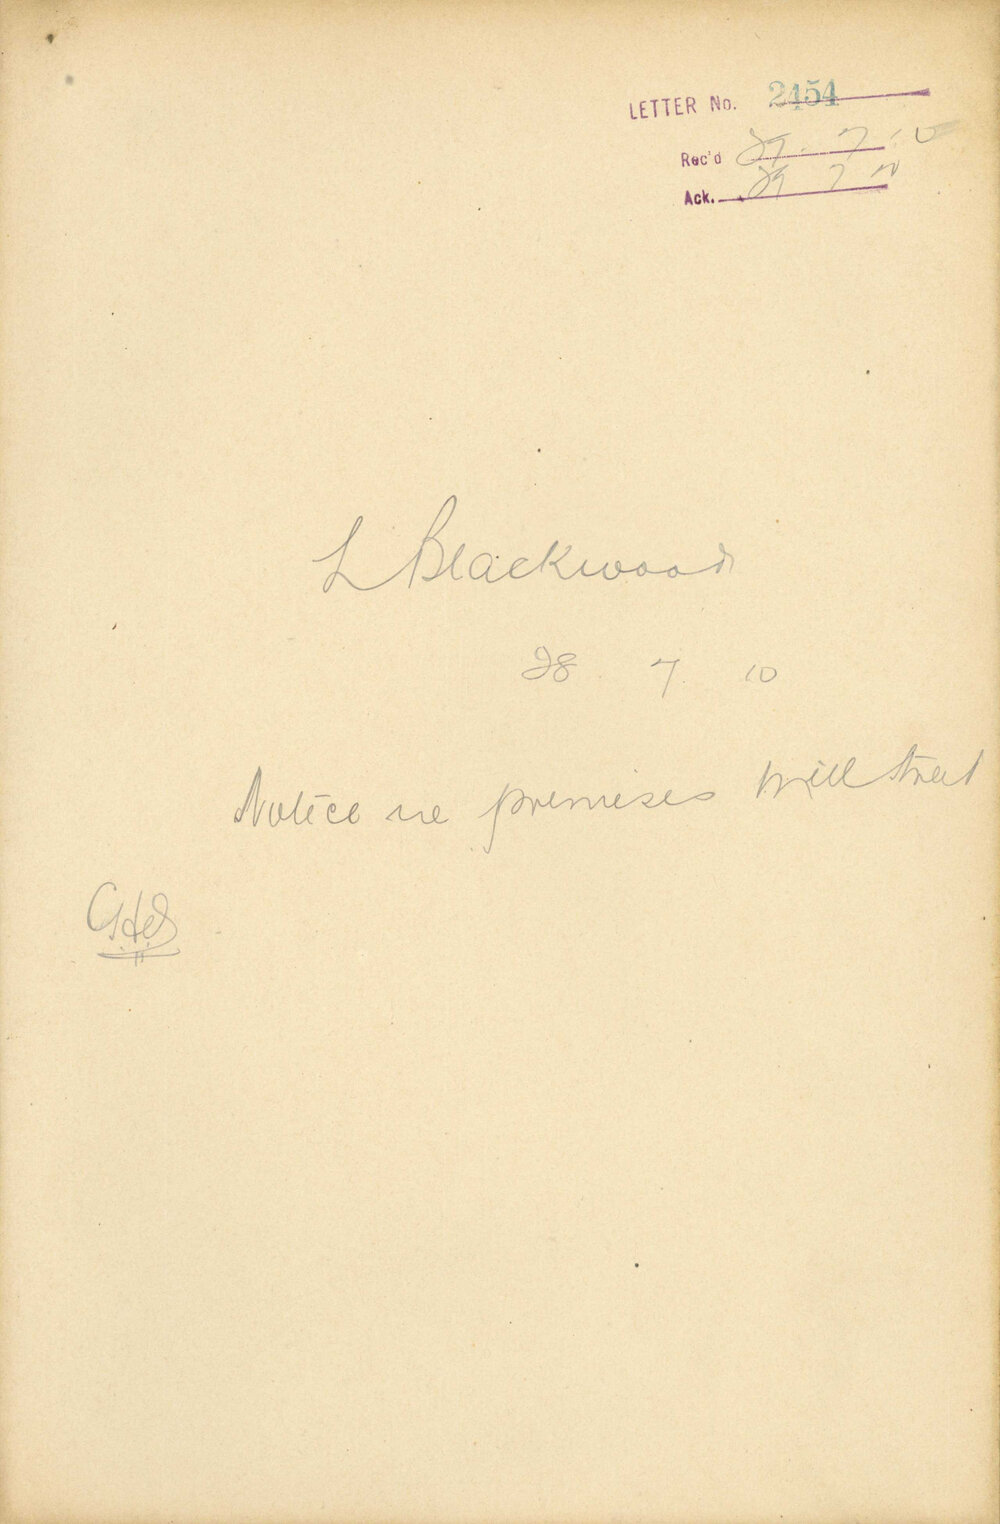 LETTER No. 2454
Rec'd 29. 7. 10
Ack. 29 7 10
L Blackwood
28 7 10
Notice re premises will treat